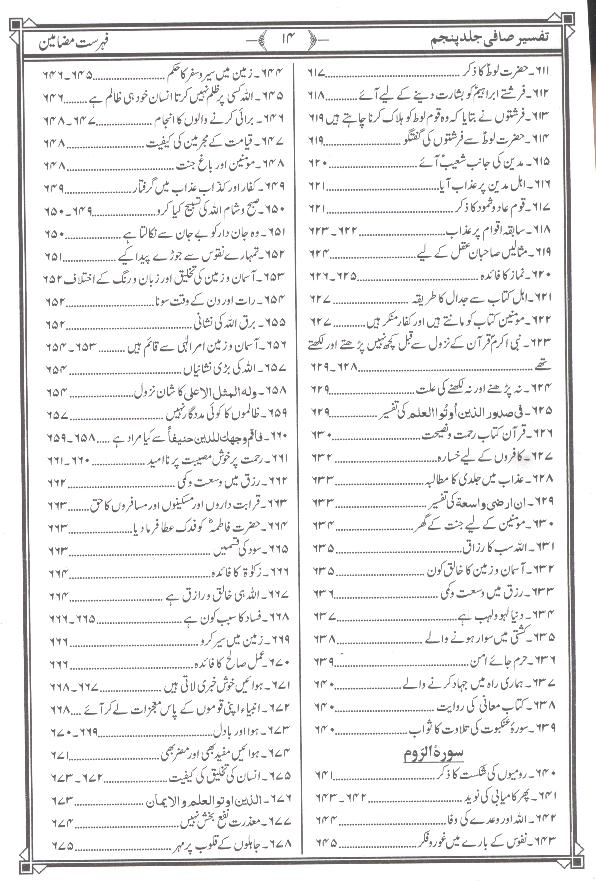 تفسیر صافی جلد پنجم ﴿۱۴﴾ فہرست مضامین
۶۱۱۔ حضرت لوطؑ کا ذکر ........ ۶۱۷
۶۱۲۔ فرشتے ابراہیمؑ کو بشارت دینے کے لیے آئے ........ ۶۱۸
۶۱۳۔ فرشتوں نے بتایا کہ وہ قوم لوط کو ہلاک کرنا چاہتے ہیں ۶۱۹
۶۱۴۔ حضرت لوطؑ سے فرشتوں کی گفتگو ........ ۶۱۹
۶۱۵۔ مدین کی جانب شعیبؑ آئے ........ ۶۲۰
۶۱۶۔ اہل مدین پر عذاب آیا ........ ۶۲۱
۶۱۷۔ قوم عاد و ثمود کا ذکر ........ ۶۲۱
۶۱۸۔ سابقہ اقوام پر عذاب ........ ۶۲۲۔۶۲۳
۶۱۹۔ مثالیں صاحبان عقل کے لیے ........ ۶۲۴
۶۲۰۔ نماز کا فائدہ ........ ۶۲۵۔۶۲۶
۶۲۱۔ اہل کتاب سے جدال کا طریقہ ........ ۶۲۷
۶۲۲۔ مومنین کتاب کو مانتے ہیں اور کفار منکر ہیں ........ ۶۲۷
۶۲۳۔ نبی اکرمؐ قرآن کے نزول سے قبل کچھ نہیں پڑھتے اور لکھتے
تھے ........ ۶۲۸۔۶۲۹
۶۲۴۔ نہ پڑھنے اور نہ لکھنے کی علت ........ ۶۲۹
۶۲۵۔ فی صدور الذین اُوتُوا العلم کی تفسیر ........ ۶۲۹
۶۲۶۔ قرآن کتاب رحمت و نصیحت ........ ۶۳۰
۶۲۷۔ کافروں کے لیے خسارہ ........ ۶۳۲
۶۲۸۔ عذاب میں جلدی کا مطالبہ ........ ۶۳۳
۶۲۹۔ ان ارضی واسعة کی تفسیر ........ ۶۳۳
۶۳۰۔ مومنین کے لیے جنت کے گھر ........ ۶۳۴
۶۳۱۔ اللہ سب کا رزاق ........ ۶۳۵
۶۳۲۔ آسمان و زمین کا خالق کون ........ ۶۳۵
۶۳۳۔ رزق میں وسعت و کمی ........ ۶۳۶
۶۳۴۔ دنیا لہو و لہب ہے ........ ۶۳۷
۶۳۵۔ کشتی میں سوار ہونے والے ........ ۶۳۸
۶۳۶۔ حرم جائے امن ........ ۶۳۹
۶۳۷۔ ہماری راہ میں جہاد کرنے والے ........ ۶۴۰
۶۳۸۔ کتاب معانی کی روایت ........ ۶۴۰
۶۳۹۔ سورۂ عنکبوت کی تلاوت کا ثواب ........ ۶۴۰
سورۃ الروم
۶۴۰۔ رومیوں کی شکست کا ذکر ........ ۶۴۱
۶۴۱۔ پھر کامیابی کی نوید ........ ۶۴۲۔۶۴۳
۶۴۲۔ اللہ اور وعدے کی وفا ........ ۶۴۴
۶۴۳۔ نفوس کے بارے میں غور و فکر ........ ۶۴۵
۶۴۴۔ زمین میں سیر و سفر کا حکم ........ ۶۴۵۔۶۴۶
۶۴۵۔ اللہ کسی پر ظلم نہیں کرتا انسان خود ہی ظالم ہے ........ ۶۴۶
۶۴۶۔ برائی کرنے والوں کا انجام ........ ۶۴۷۔۶۴۸
۶۴۷۔ قیامت کے مجرمین کی کیفیت ........ ۶۴۸
۶۴۸۔ مؤمنین اور باغ جنت ........ ۶۴۸
۶۴۹۔ کفار اور کذاب عذاب میں گرفتار ........ ۶۴۹
۶۵۰۔ صبح و شام اللہ کی تسبیح کیا کرو ........ ۶۴۹۔۶۵۰
۶۵۱۔ وہ جان دار کو بے جان سے نکالتا ہے ........ ۶۵۰
۶۵۲۔ تمہارے نفوس سے جوڑے پیدا کیے ........ ۶۵۱
۶۵۳۔ آسمان و زمین کی تخلیق اور زبان و رنگ کے اختلاف ۶۵۲
۶۵۴۔ رات اور دن کے وقت سونا ........ ۶۵۲
۶۵۵۔ برق اللہ کی نشانی ........ ۶۵۲
۶۵۶۔ آسمان و زمین امر الٰہی سے قائم ہیں ........ ۶۵۳۔۶۵۴
۶۵۷۔ اللہ کی بڑی نشانیاں ........ ۶۵۴
۶۵۸۔ وله المثل الاعلی کا شان نزول ........ ۶۵۴
۶۵۹۔ ظالموں کا کوئی مددگار نہیں ........ ۶۵۷
۶۶۰۔ فاقم وجهك للدين حنيفاً سے کیا مراد ہے ........ ۶۵۸۔۶۵۹
۶۶۱۔ رحمت پر خوش مصیبت پر نا امید ........ ۶۶۰۔۶۶۱
۶۶۲۔ رزق میں وسعت و کمی ........ ۶۶۲
۶۶۳۔ قرابت داروں اور مسکینوں اور مسافروں کا حق ........ ۶۶۳
۶۶۴۔ حضرت فاطمہؑ کو فدک عطا فرما دیا ........ ۶۶۳
۶۶۵۔ سود کی قسمیں ........ ۶۶۳
۶۶۶۔ زکوٰۃ کا فائدہ ........ ۶۶۴
۶۶۷۔ اللہ ہی خالق و رازق ہے ........ ۶۶۴
۶۶۸۔ فساد کا سبب کون ہے ........ ۶۶۵۔۶۶۶
۶۶۹۔ زمین میں سیر کرو ........ ۶۶۶
۶۷۰۔ عمل صالح کا فائدہ ........ ۶۶۶
۶۷۱۔ ہوائیں خوش خبری لاتی ہیں ........ ۶۶۷۔۶۶۸
۶۷۲۔ انبیاء اپنی قوموں کے پاس معجزات لے کر آئے ........ ۶۶۸
۶۷۳۔ ہوا اور بادل ........ ۶۶۹۔۶۷۰
۶۷۴۔ ہوائیں مفید بھی اور مضر بھی ........ ۶۷۱
۶۷۵۔ انسان کی تخلیق کی کیفیت ........ ۶۷۲۔۶۷۳
۶۷۶۔ الذین اوتو العلم والایمان ........ ۶۷۳
۶۷۷۔ معذرت نفع بخش نہیں ........ ۶۷۴
۶۷۸۔ جاہلوں کے قلوب پر مہر ........ ۶۷۵